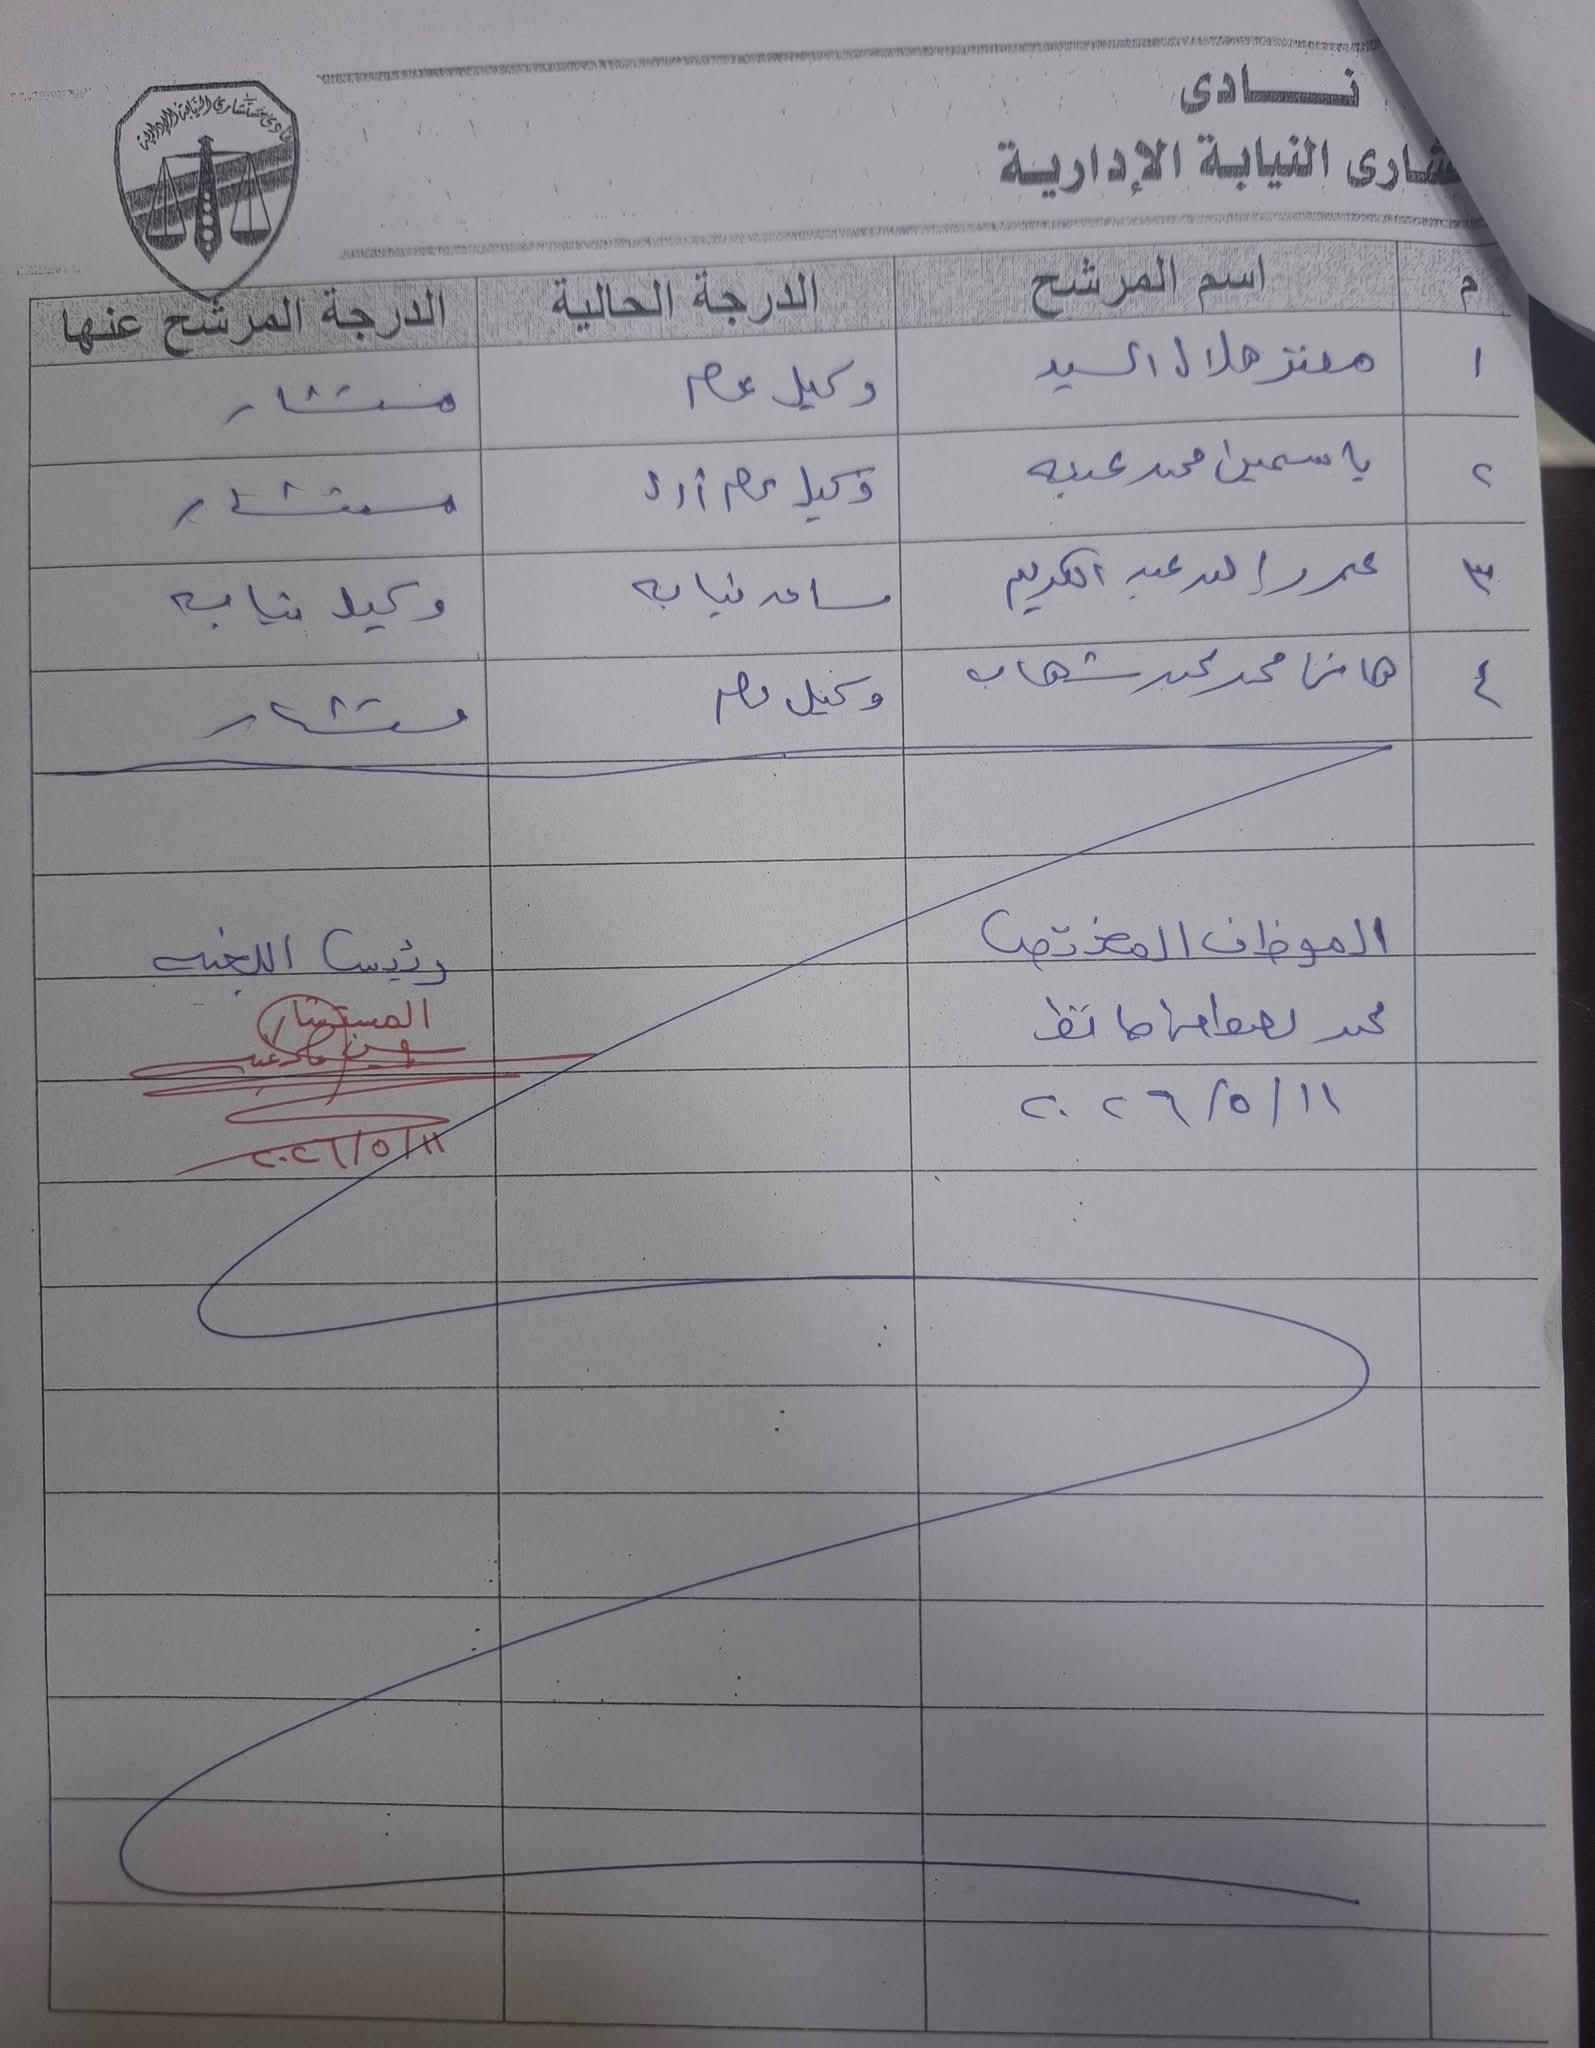 نادى
شارى النيابة الإدارية
نادى مستشارى النيابة الإدارية
م اسم المرشح الدرجة الحالية الدرجة المرشح عنها
١ معتز هلال السيد وكيل عام مستشار
٢ ياسمين محمد وكيل عام أول مستشار
٣ عمرو عبد الكريم مساعد نيابه وكيل نيابه
٤ محمد محمد شهاب وكيل عام مستشار
الموظف المختص رئيس اللجنه
محمد المستشار
٢٠٢٦/٥/١١ ٢٠٢٦/٥/١١